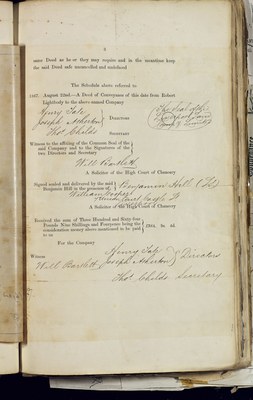 3
same Deed as he or they may require and in the meantime keep
the said Deed safe uncancelled and undefaced
The Schedule above referred to
1867. August 22nd.—A Deed of Conveyance of this date from Robert
Lightbody to the above-named Company
Henry Tate
Joseph Asherton
DIRECTORS
Thos. Childs
SECRETARY
Witness to the affixing of the Common Seal of the
said Company and to the Signatures of the
two Directors and Secretary
Will Bartlett
A Solicitor of the High Court of Chancery
Signed sealed and delivered by the said
Benjamin Hall in the presence of
Benjamin Hall
William
A Solicitor of the High Court of Chancery
Received the sum of Three Hundred and Sixty four
Pounds Nine Shillings and Fourpence being the
consideration money above mentioned to be paid
to us
£364. 9s. 4d.
For the Company
Witness
Will Bartlett
Henry Tate
Joseph Asherton
Directors
Thos. Childs Secretary